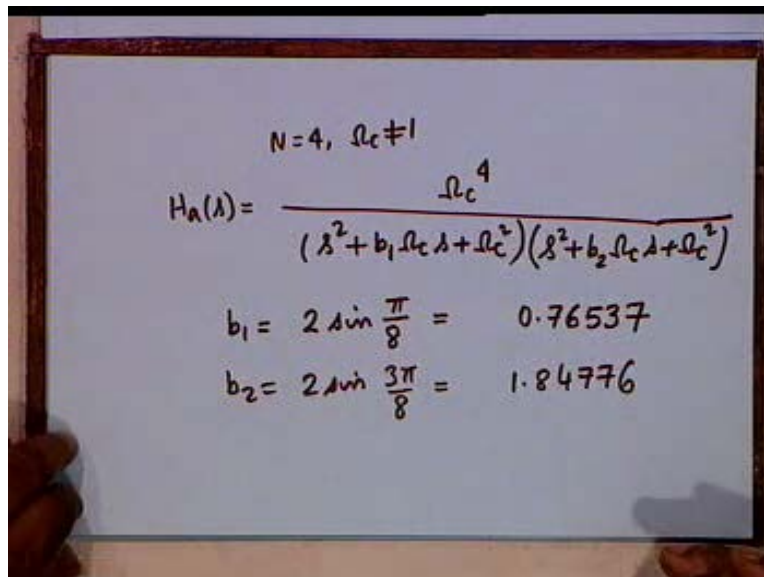 N=4, Ωc≠1
Ha(s) = Ωc^4 / (s²+b₁Ωc s+Ωc²)(s²+b₂Ωc s+Ωc²)
b₁ = 2 sin π/8 = 0.76537
b₂ = 2 sin 3π/8 = 1.84776